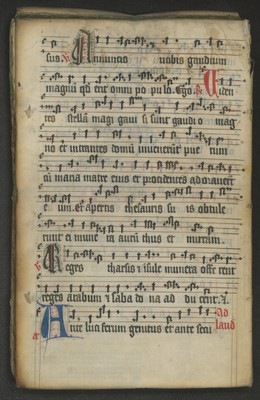 sus. V. Annuncio vobis gaudium
magnū qd erit omni po pu lo. Ego. R. Viden
tes stellā magi gaui si sunt gaudi o mag
no et intrantes domū inuenerūt pue rum
cū maria matre eius et procidentes adorauert
e um. et apertis thesauris su is obtule
runt ei mune ra aurū thus et mirram.
V. Reges tharsis 7 isule munera offe rent
reges arabum 7 saba do na ad du cent. 7.
Ante luciferum genitus et ante secu
ad laud
a